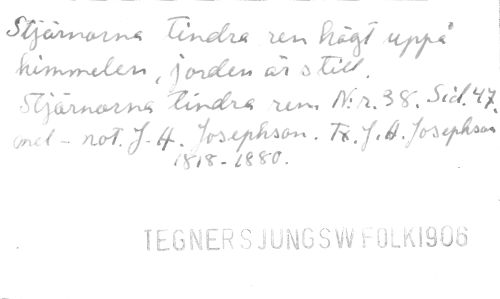 Stjärnorna tindra ren högt uppå
himmelen, jorden är still.
Stjärnorna tindra ren. N:r. 38. Sid. 47.
mel - not. J. A. Josephson. Tx. J. A. Josephson
1818-1880.
TEGNERSJUNGSWFOLK1906